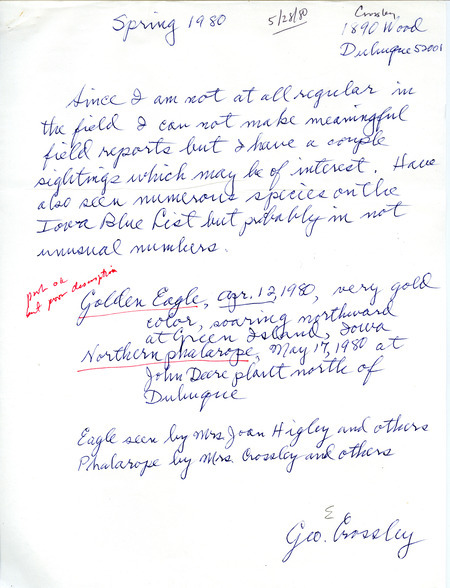 Spring 1980
5/28/80
Crosley,
1890 Wood
Dubuque 52001
Since I am not at all regular in
the field I can not make meaningful
field reports but I have a couple
sightings which may be of interest. Have
also seen numerous species on the
Iowa Blue List but probably in not
unusual numbers.
prob ok
but poor description
Golden Eagle, Apr. 12, 1980, very gold
color, soaring northward
at Green Island, Iowa
Northern phalarope, May 17, 1980 at
John Deere plant north of
Dubuque
Eagle seen by Mrs. Joan Higley and others
Phalarope by Mrs. Crossley and others
E
Geo. Crossley